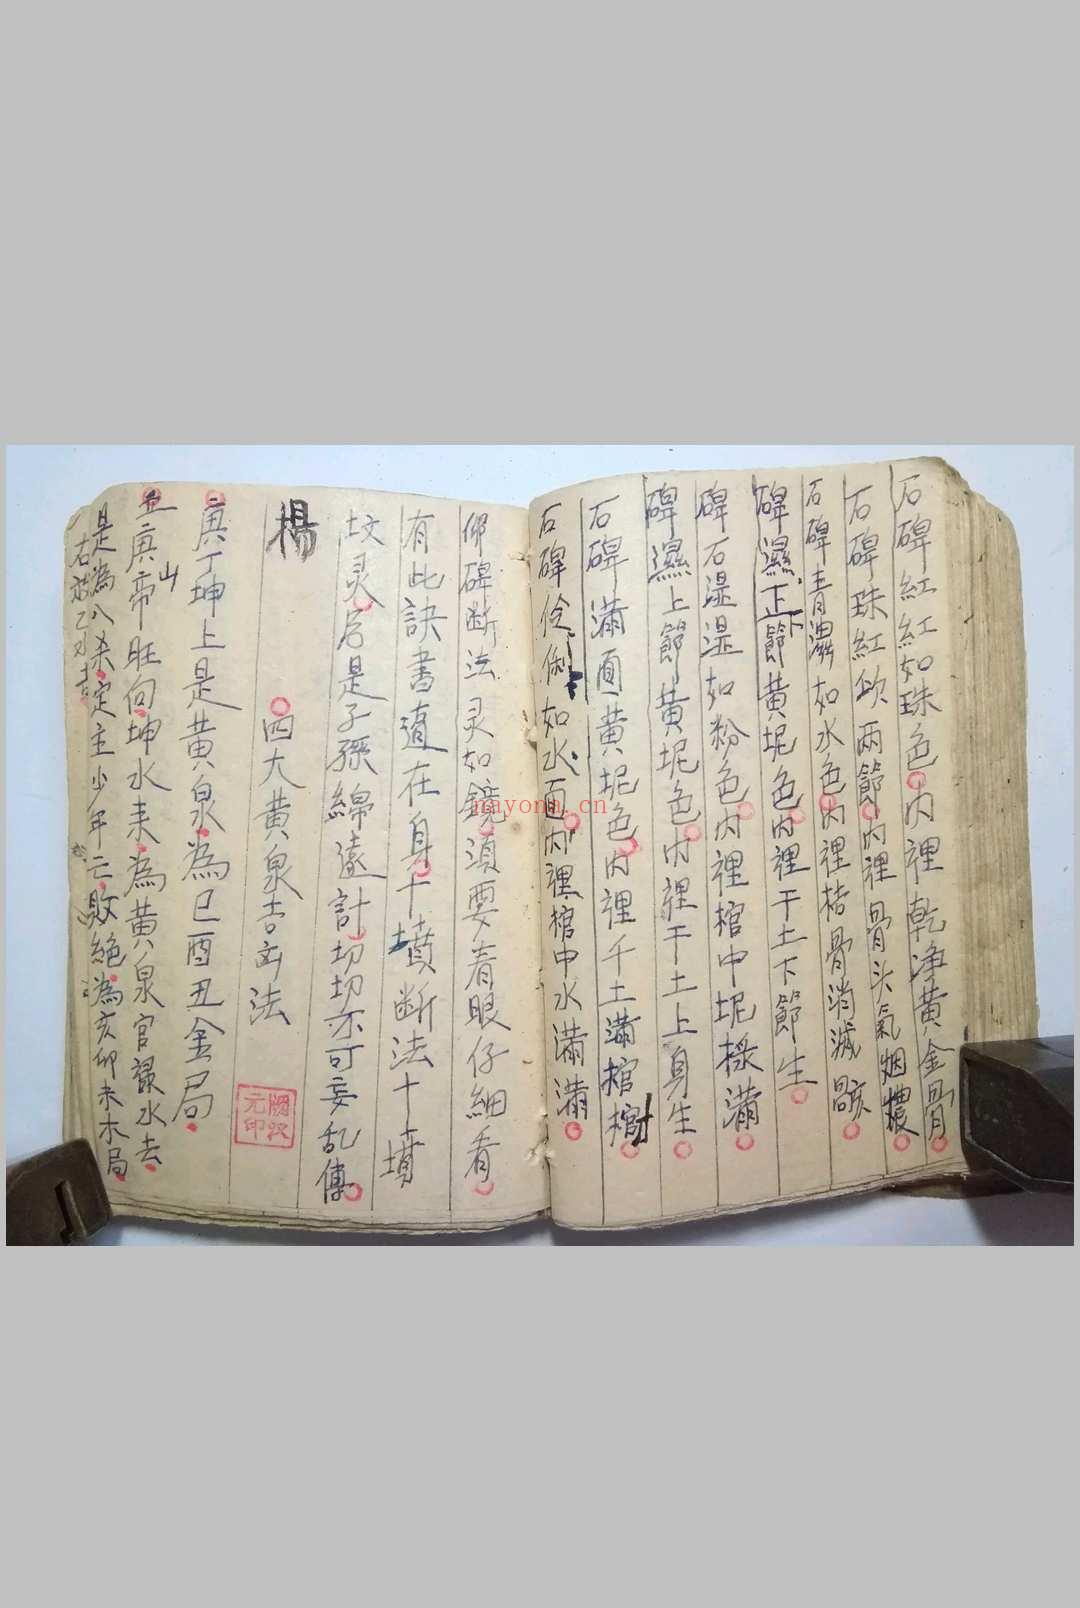 石碑紅紅如珠色内裡乾净黄金骨
石碑珠紅欽兩節内裡骨头氣烟
石碑青濕如水色内裡枯骨消滅
碑濕正下節黄坭色内裡干土下節生
碑石湿湿如粉色内裡棺中坭滿
碑濕上節黄坭色内裡干土上身生
石碑滿面黄坭色内裡千土滿棺
石碑伶俐如水面内裡棺中水滿滿
仰碑断法灵如鏡湏要着眼仔細看
有此訣書適在身十墳断法十墳
坟灵后是子孫綿遠計切切不可妄乱傳
楊
四大黄泉吉凶法
庚丁坤上是黄泉為巳酉丑金局
丑庚山帝旺向坤水来為黄泉官禄水去
是為八杀定主少年亡敗絕為亥卯未木局
元印
nayona.cn